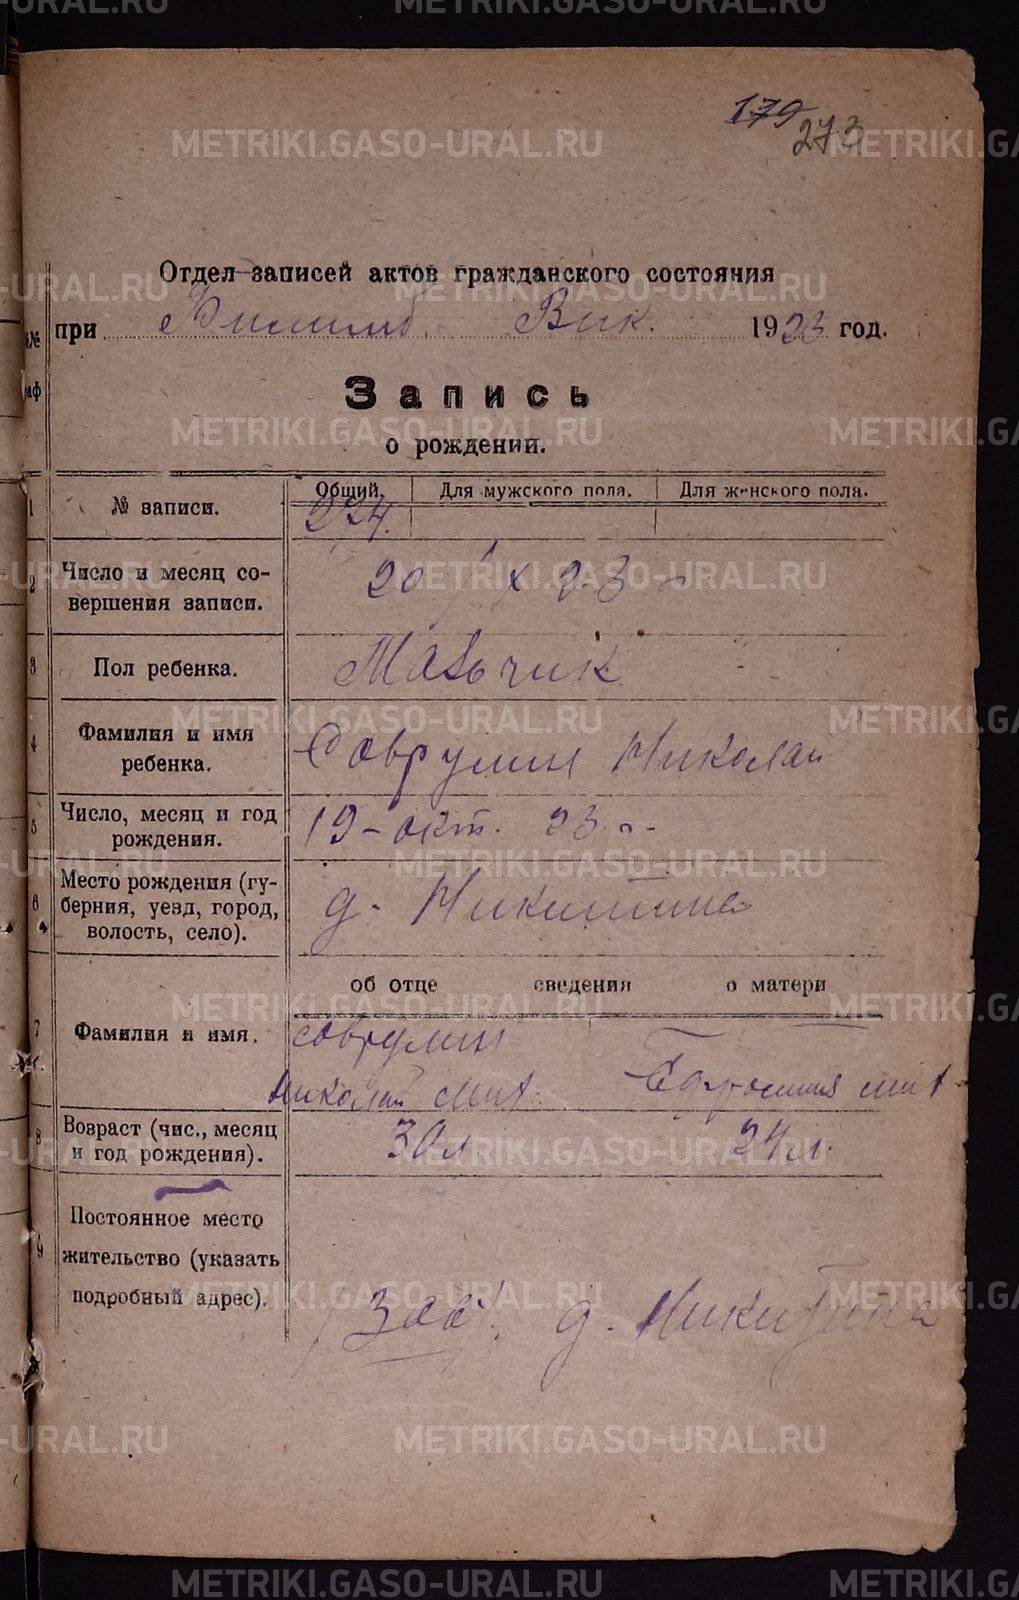 179
273
Отдел записей актов гражданского состояния
при Вик. 1923 год.
Запись
о рождении.
1 № записи. Общий. Для мужского поля. Для женского поля.
224.
2 Число и месяц со-
вершения записи. 20/X 23
3 Пол ребенка. Мальчик
4 Фамилия и имя
ребенка. Соврулин Николай
5 Число, месяц и год
рождения. 19-окт. 23
6 Место рождения (гу-
берния, уезд, город,
волость, село). д. Никитина
об отце сведения о матери
7 Фамилия и имя. Соврулин
Николай Мит.
8 Возраст (чис., месяц
и год рождения). 30 л 24 л.
9 Постоянное место
жительство (указать
подробный адрес). д. Никитина
METRIKI.GASO-URAL.RU